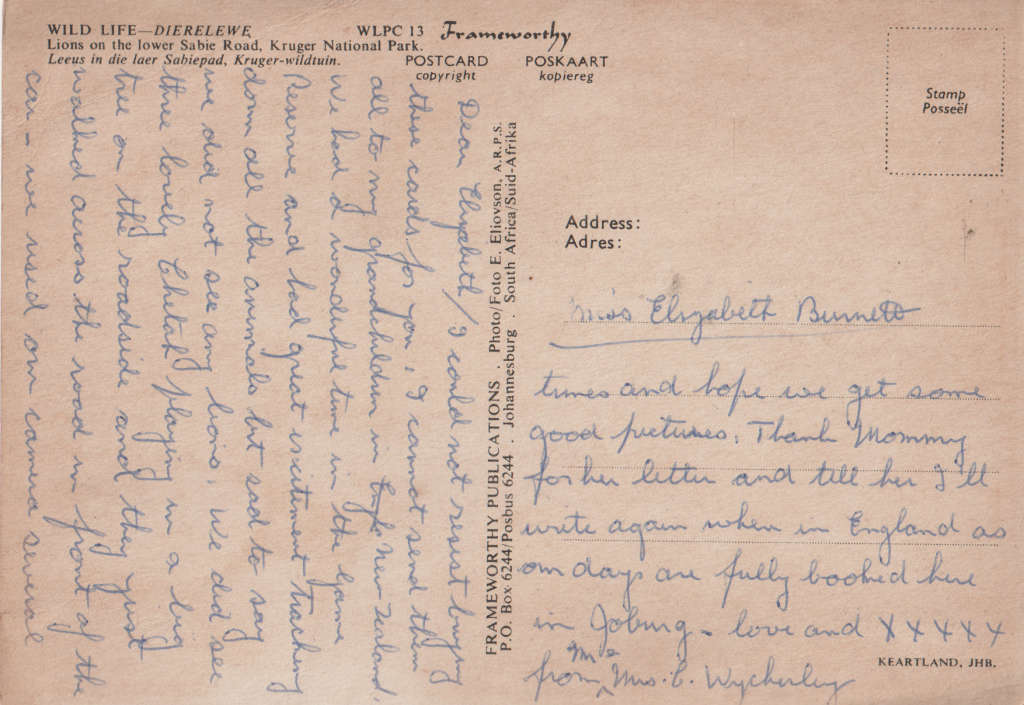 WILD LIFE—DIERELEWE WLPC 13
Lions on the lower Sabie Road, Kruger National Park.
Leeus in die laer Sabiepad, Kruger-wildtuin.
Frameworthy
POSTCARD POSKAART
copyright kopiereg
Stamp
Posseël
Dear Elizabeth, I could not resist buying
these cards for you, I cannot send them
all to my grandchildren in New Zealand.
We had a wonderful time in the Game
Reserve and had great excitement tracking
down all the animals but sad to say
we did not see any lions, we did see
three lovely Chetah playing in a big
tree on the roadside and they just
walked across the road in front of the
car – we used our camera several
FRAMEWORTHY PUBLICATIONS . Photo/Foto E. Eliovson, A.R.P.S.
P.O. Box 6244/Posbus 6244 . Johannesburg . South Africa/Suid-Afrika
Address:
Adres:
Miss Elizabeth Burnett
times and hope we get some
good pictures. Thank Mommy
for her letter and tell her I'll
write again when in England as
our days are fully booked here
in Joburg – love and X X X X X
from Me Mrs. C. Wycherley
KEARTLAND, JHB.